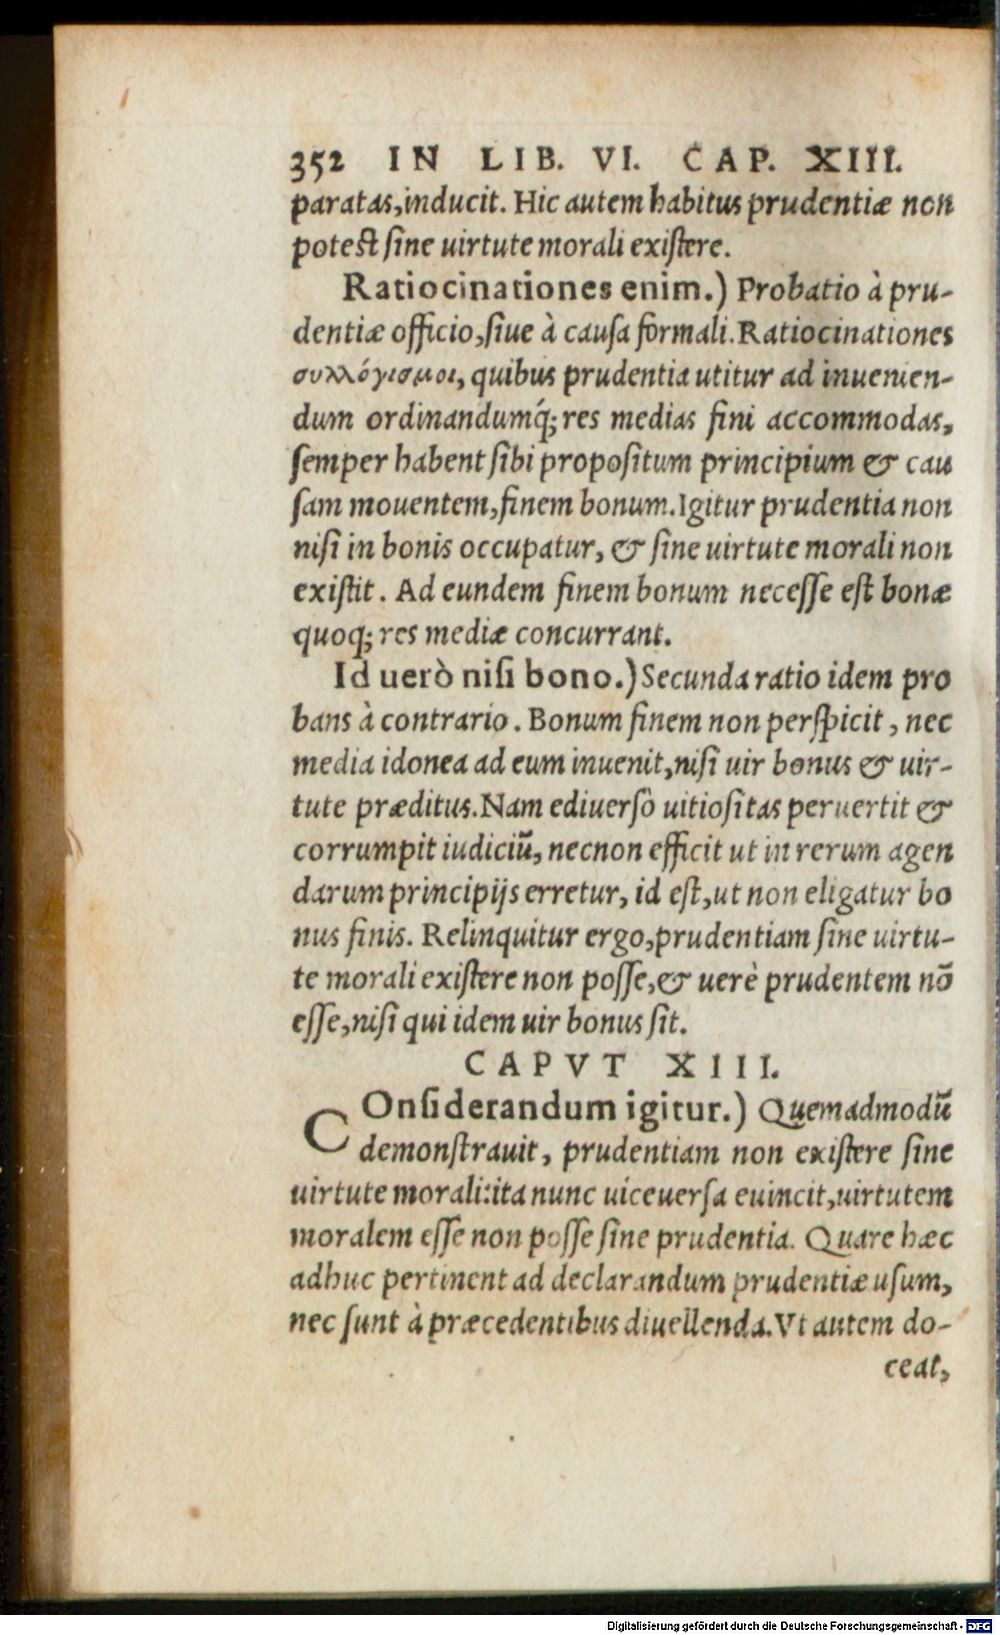 352 IN LIB. VI. CAP. XIII.
paratas,inducit. Hic autem habitus prudentiæ non
potest sine uirtute morali existere.
Ratiocinationes enim.) Probatio à pru-
dentiæ officio,siue à causa formali.Ratiocinationes
συλλόγισμοι, quibus prudentia utitur ad inuenien-
dum ordinandumq́; res medias fini accommodas,
semper habent sibi propositum principium & cau
sam mouentem,finem bonum.Igitur prudentia non
nisi in bonis occupatur, & sine uirtute morali non
existit. Ad eundem finem bonum necesse est bonæ
quoq; res mediæ concurrant.
Id uerò nisi bono.) Secunda ratio idem pro
bans à contrario. Bonum finem non perspicit, nec
media idonea ad eum inuenit,nisi uir bonus & uir-
tute præditus.Nam ediuerso uitiositas peruertit &
corrumpit iudiciū, necnon efficit ut in rerum agen
darum principijs erretur, id est,ut non eligatur bo
nus finis. Relinquitur ergo,prudentiam sine uirtu-
te morali existere non posse,& uerè prudentem nō
esse,nisi qui idem uir bonus sit.
CAPVT XIII.
COnsiderandum igitur.) Quemadmodū
demonstrauit, prudentiam non existere sine
uirtute morali:ita nunc uiceuersa euincit,uirtutem
moralem esse non posse sine prudentia. Quare hæc
adhuc pertinent ad declarandum prudentiæ usum,
nec sunt à præcedentibus diuellenda.Vt autem do-
ceat,
Digitalisierung gefördert durch die Deutsche Forschungsgemeinschaft - DFG